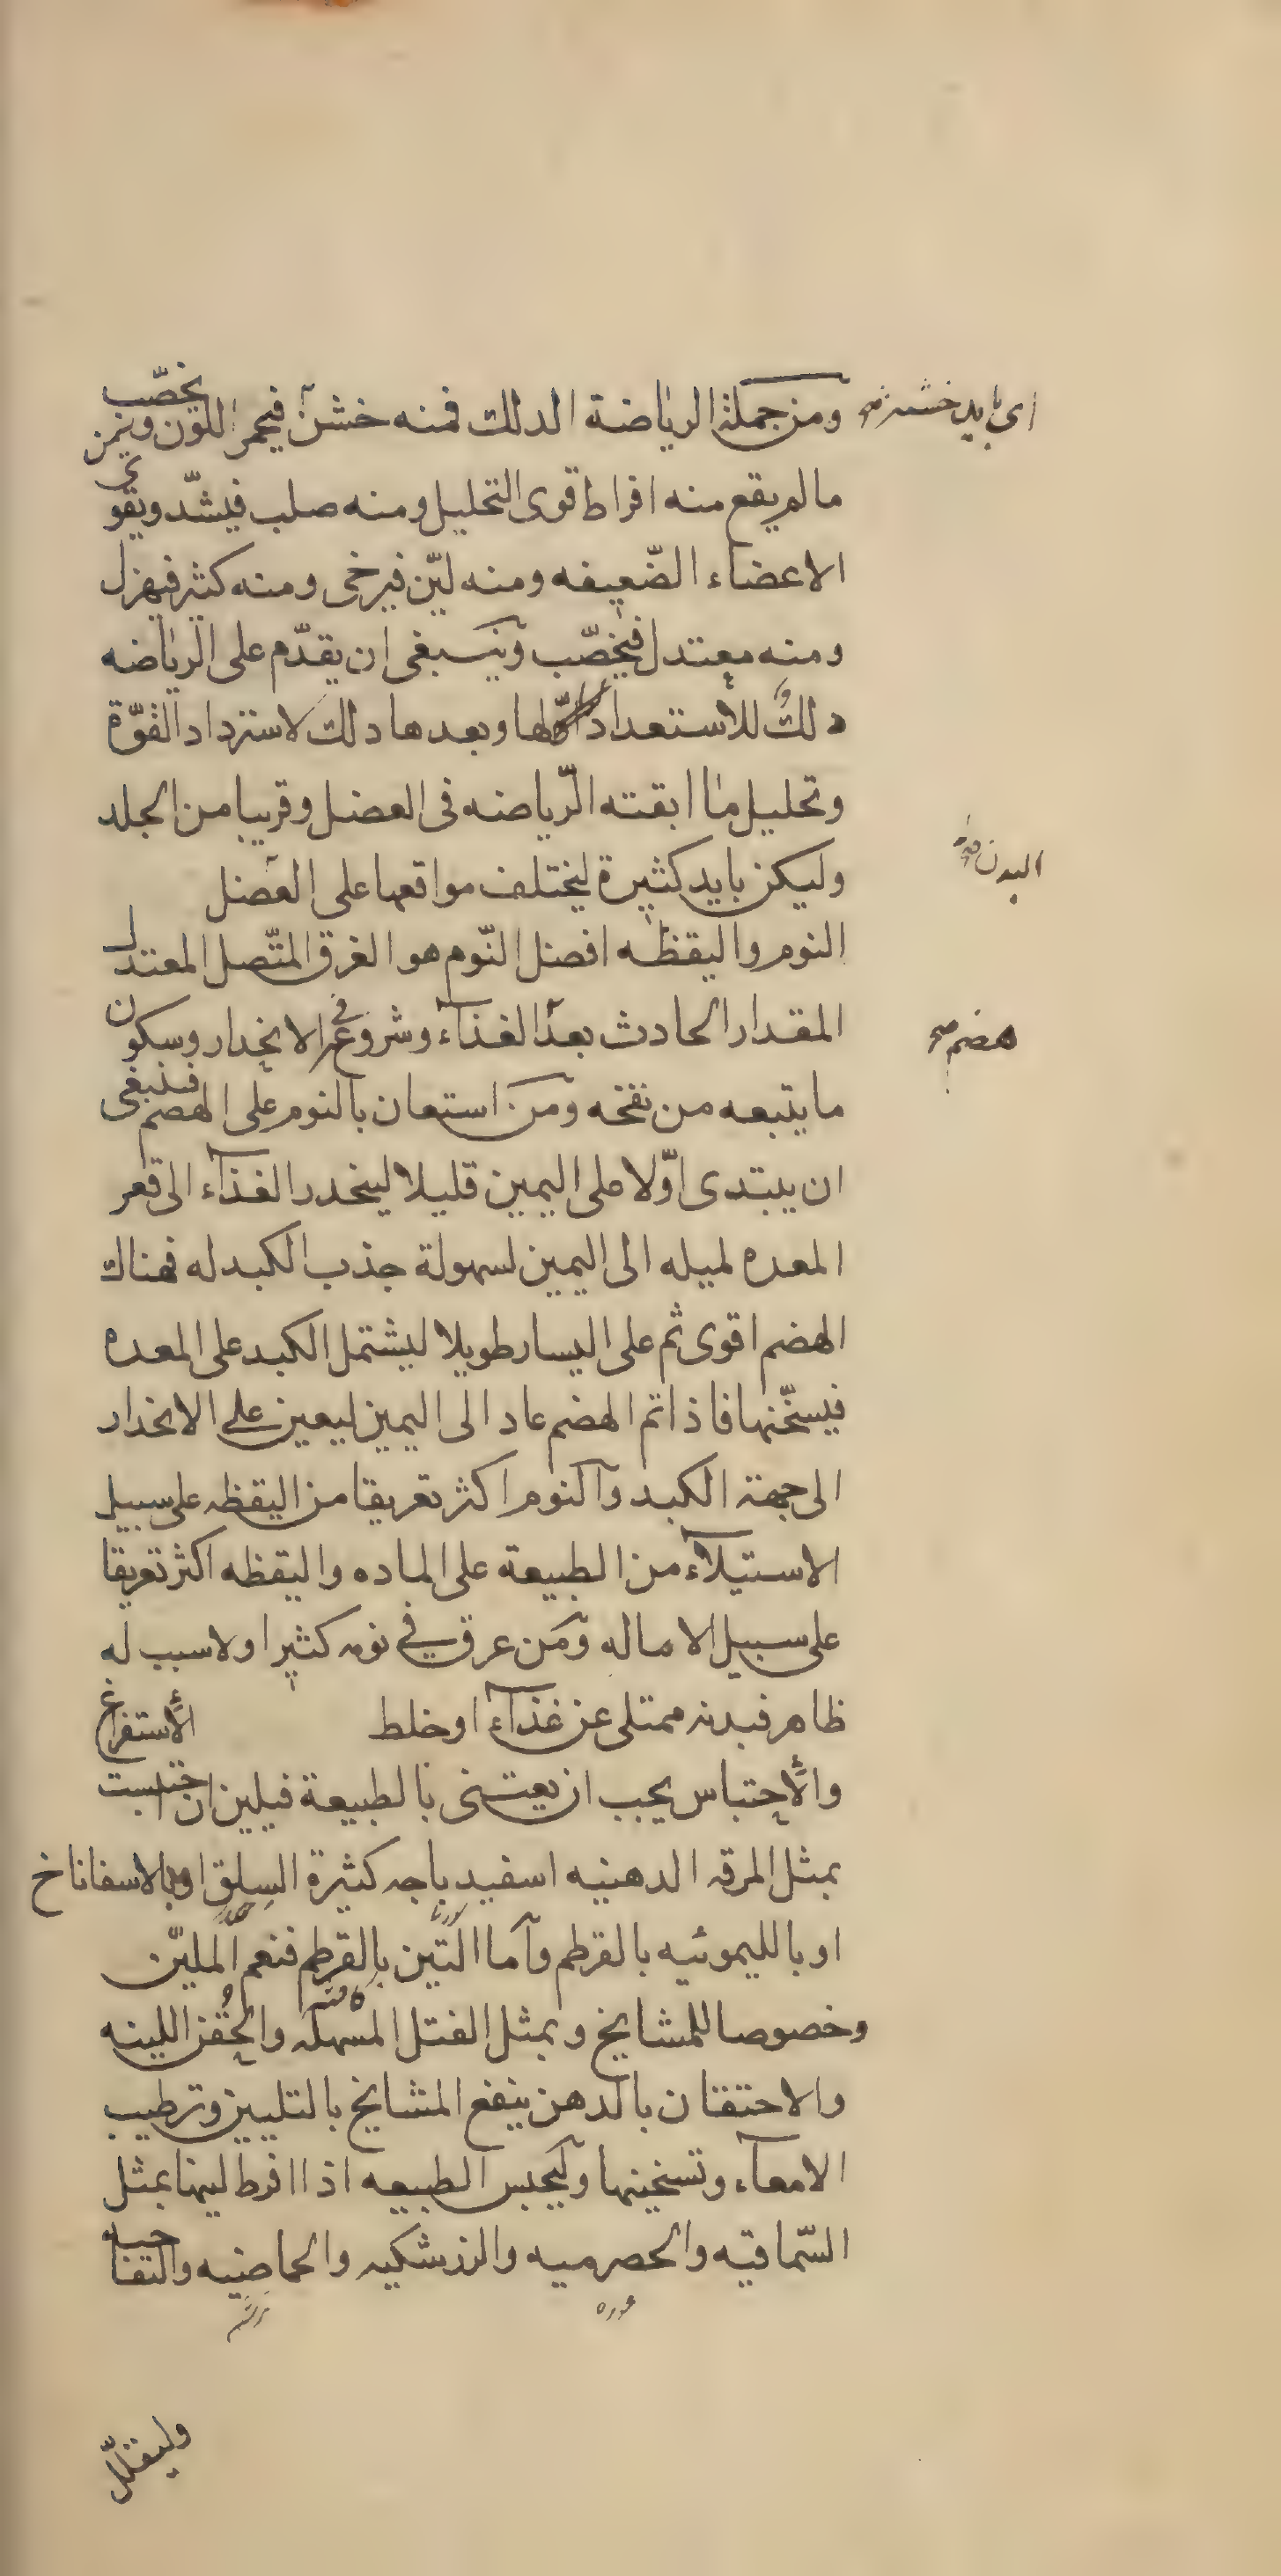 ومن جملة الرياضة الدلك فمنه خشن فيحمر اللون ويخصب
اى بايد خشنه صح
ما لم يقع منه افراط قوى التحليل ومنه صلب فيشدّ ويقوى
الاعضاء الضّعيفه ومنه ليّن فيرخى ومنه كثير فيهزل
ومنه معتدل فيخصّب وينبغى ان يقدّم على الرياضه
دلكٌ للأستعداد لها وبعدها دلك لاستزداد القوّة
وتحليل ما ابقته الرّياضه فى العضل وقريبا من الجلد
وليكن بايد كثيرة ليختلف مواقعها على العضل
البدن
النوم واليقظه افضل النّوم هو الغرق المتّصل المعتدل
المقدار الحادث بعد الغذآء وشروعه فى الانحدار وسكون
هضم صح
ما يتبعه من نفخه ومن استعان بالنوم على الهضم فينبغى
ان يبتدى اوّلا على اليمين قليلا لينحدر الغذآء الى قعر
المعده لميله الى اليمين لسهولة جذب الكبد له فهناك
الهضم اقوى ثم على اليسار طويلا ليشتمل الكبد على المعده
فيسخّنها فاذا تم الهضم عاد الى اليمين ليعين على الانحدار
الى جهة الكبد والنوم اكثر تعريقا من اليقظه على سبيل
الاستيلآء من الطبيعة على الماده واليقظه اكثر تعريقا
على سبيل الاساله ومن عرق فى نومه كثيرا ولا سبب له
ظاهر فبدنه ممتلى عن غذآء او خلط الأستفراغ
والأحتباس يجب ان يعتنى بالطبيعة فيلين ان احتبست
بمثل المرقه الدهنيه اسفيدباجه كثيرة السلق او بالاسفاناخ
او بالليمونيه بالقرطم وآما التين بالقرطم فنعم المليّن
وخصوصا للمشايخ وبمثل الفتل المسهله والحُقن اللينه
والاحتقان بالدهن ينفع المشايخ بالتليين وترطيب
الامعآء وتسخينها وليحبس الطبيعه اذا افرط لينها بمثل
السّماقيه والحصرميه والزرشكيه والحماضيه والتفاحيه
غوره
وليقلّل